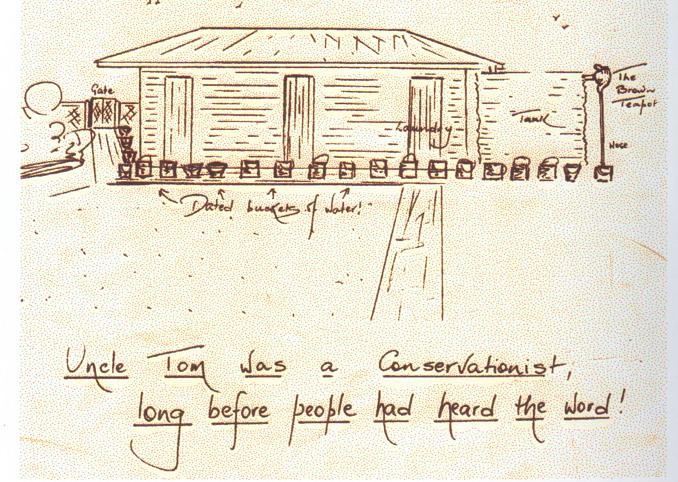 Gate
The
Brown
Teapot
Laundry
Tank
Hose
Dated buckets of water!
Uncle Tom was a Conservationist,
long before people had heard the word!